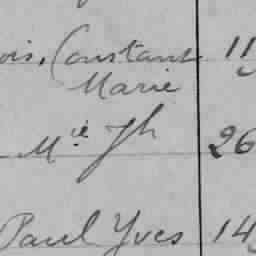 ois, Constant 11
Marie
Mie Jh 26
Paul Yves 14